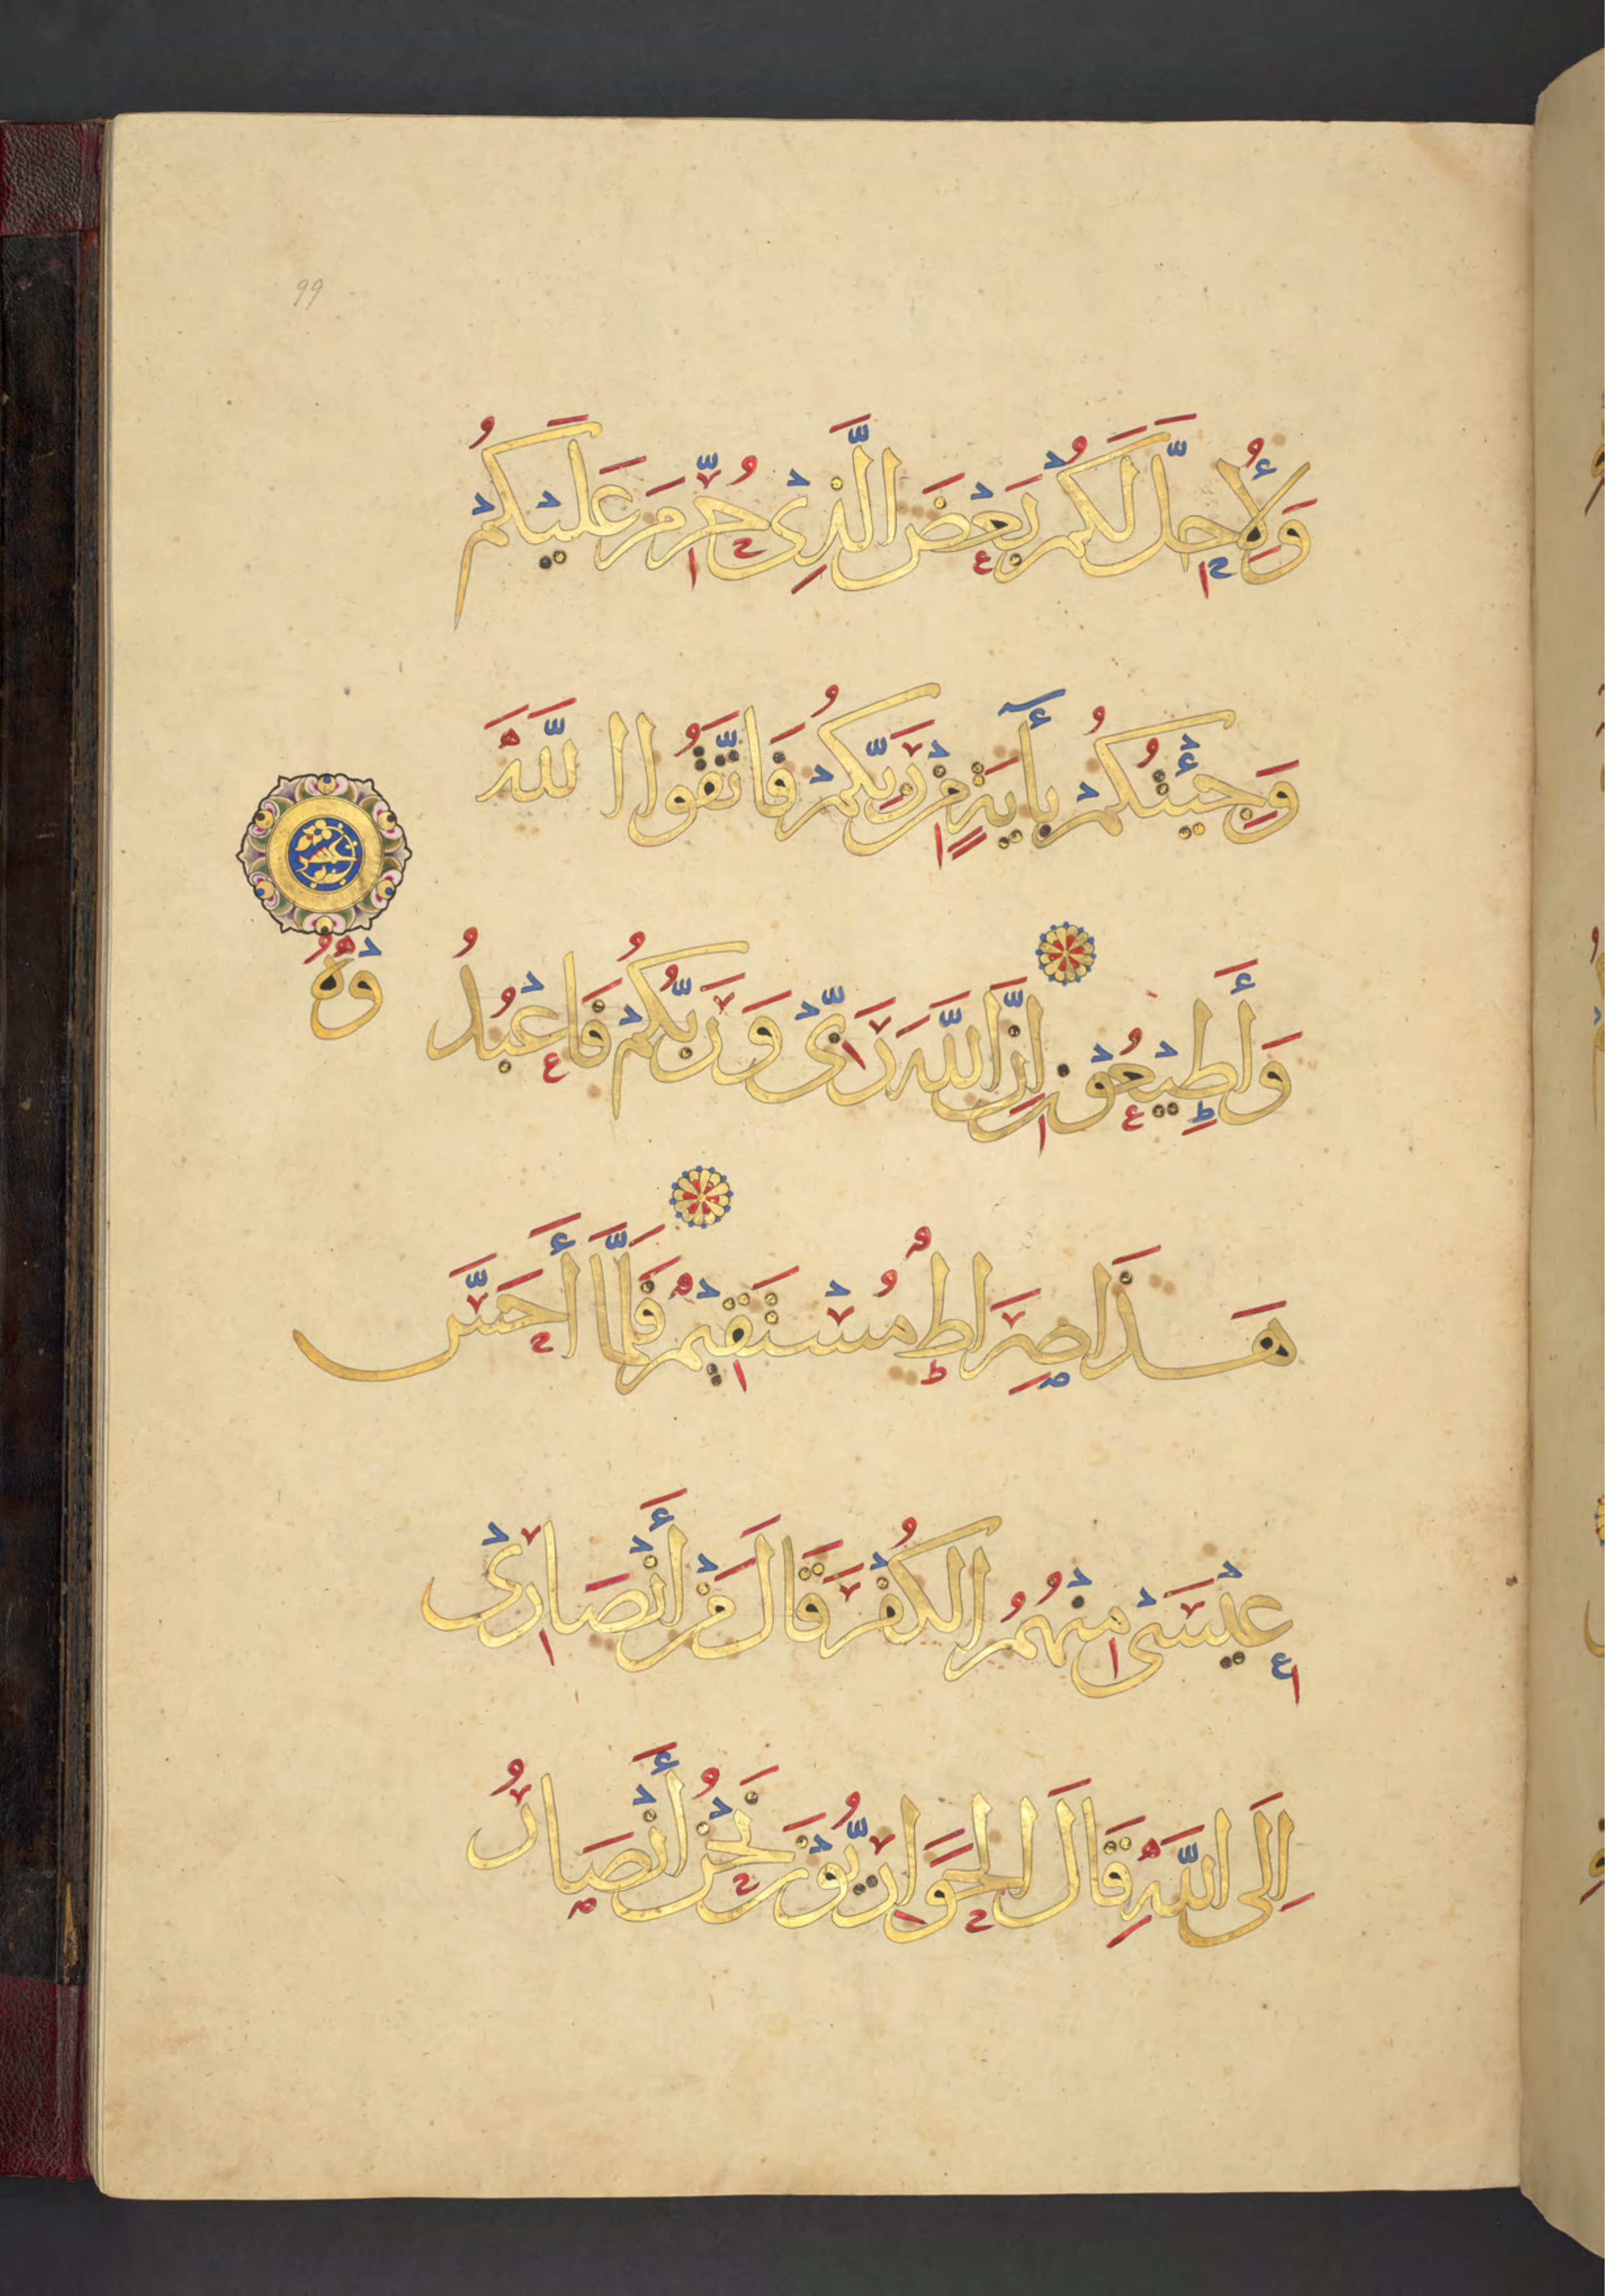 99
وَلِأُحِلَّ لَكُمْ بَعْضَ الَّذِيْ حُرِّمَ عَلَيْكُمْ
وَجِئْتُكُمْ بِأٓيَةٍ مِنْ رَبِّكُمْ فَاتَّقُوا اللَّهَ
وَأَطِيْعُوْنِ إِنَّ اللَّهَ رَبِّيْ وَرَبُّكُمْ فَاعْبُدُ
وْهُ
هَذَا صِرَاطٌ مُسْتَقِيْمٌ فَلَمَّا أَحَسَّ
عِيْسَىْ مِنْهُمُ الكُفْرَ قَالَ مَنْ أَنْصَارِيْ
إِلَى اللَّهِ قَالَ الحَوَارِيُّوْنَ نَحْنُ أَنْصَارُ